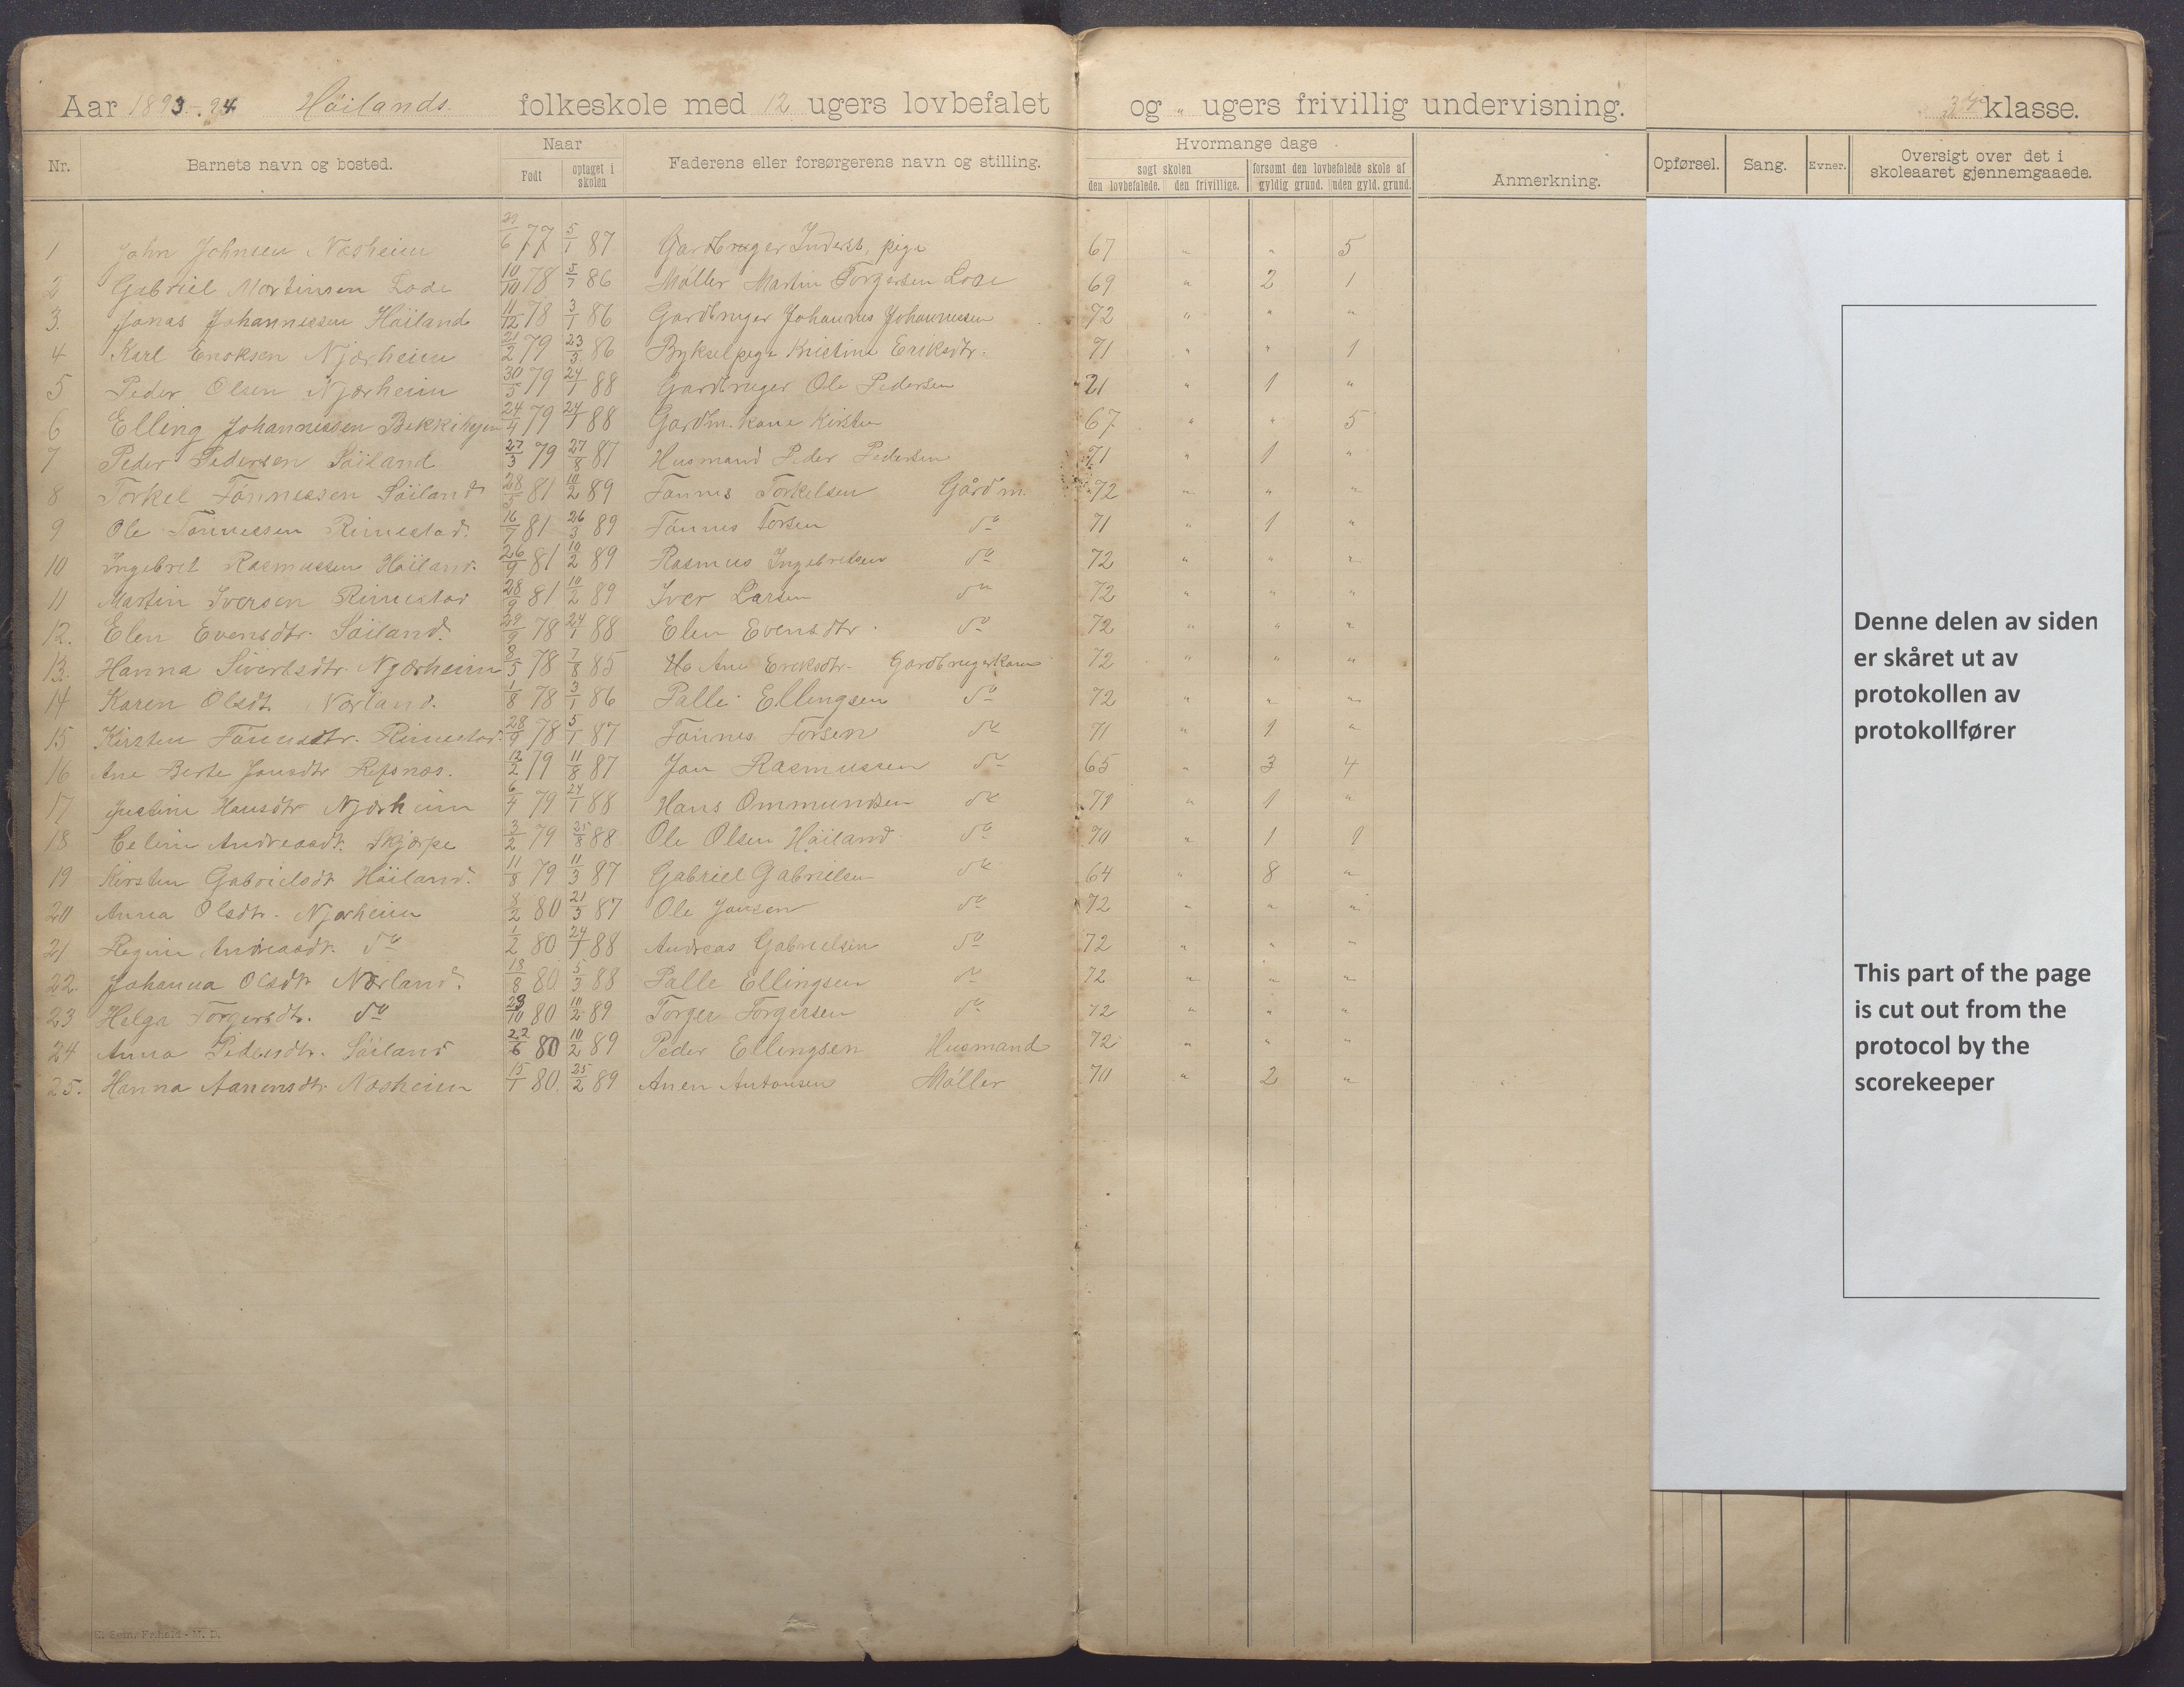 Aar 1893-94 Höilands folkeskole med 12 ugers lovbefalet og " ugers frivillig undervisning. 3die klasse.
Nr. Barnets navn og bosted. Naar Født optaget i skolen Faderens eller forsørgerens navn og stilling. Hvormange dage søgt skolen den lovbefalede. den frivillige. forsømt den lovbefalede skole af gyldig grund. uden gyld. grund. Anmerkning. Opførsel. Sang. Evner. Oversigt over det i skoleaaret gjennemgaaede.
1 John Johnsen Næsheim 6 77 5/1 87 Gardbruger Inderst. pige 67 " " 5
2 Gabriel Martinsen Lode 10/10 78 5/7 86 Møller Martin Torgersen Lode 69 " 2 1
3. Jonas Johannessen Höiland 11/12 78 3/1 86 Gardbruger Johannes Johannessen 72 " " "
4 Karl Enoksen Njærheim 21/2 79 23/3 86 Bykselpige Kristine Eriksdtr. 71 " " 1
5 Peder Olsen Njærheim 30/5 79 24/1 88 Gardbruger Ole Pedersen 21 " 1 "
6 Elling Johannessen 24/4 79 24/1 88 Gardm. kone Kirsten 67 " " 5
7 Peder Pedersen Söiland 27/3 79 27/8 87 Husmand Peder Pedersen 71 " 1 "
8 Torkel Tönnessen Söiland 28/5 81 10/2 89 Tönnes Torkelsen Gårdm. 72 " " "
9 Ole Tönnessen Rimestad. 16/7 81 26/3 89 Tönnes Torsen do 71 " 1 "
10 Ingebret Rasmussen Höiland. 26/9 81 10/2 89 Rasmus Ingebretsen do 72 " " "
11 Martin Iversen Rimestad 28/9 81 10/2 89 Iver Larsen do 72 " " "
12. Elen Evensdtr. Söiland. 29/9 78 24/1 88 Elen Evensdtr. do 72 " " "
13. Hanna Sivertsdtr. Njærheim 8/5 78 7/8 85 Ane Eriksdtr. Gardbrugerkone 72 " " "
14 Karen Olsdt Nærland. 1/8 78 3/1 86 Palle Ellingsen do 72 " " "
15 Kirsten Tönnesdtr. Rimestad. 28/9 78 5/1 87 Tönnes Torsen do 71 " 1 "
16 Ane Berte Jansdtr Refsnæs. 12/2 79 11/8 87 Jan Rasmussen do 65 " 3 4
17 Justine Hansdtr Njærheim 6/4 79 24/1 88 Hans Ommundsen do 71 " 1 "
18 Celine Andreasdt. Skjærpe 3/2 79 25/8 88 Ole Olsen Höiland do 70 " 1 1
19 Kirsten Gabrielsdt Höiland. 11/8 79 11/3 87 Gabriel Gabrielsen do 64 " 8 "
20 Anna Olsdtr. Njærheim 8/2 80 21/3 87 Ole Jansen do 72 " " "
21 Regine Andreasdt. do 1/2 80 24/1 88 Andreas Gabrielsen do 72 " " "
22. Johanna Olsdt Nærland. 18/8 80 5/3 88 Palle Ellingsen do 72 " " "
23 Helga Torgersdt. do 23/10 80 10/2 89 Torger Torgersen do 72 " " "
24 Anna Pedersdtr. Söiland 22/6 80 10/2 89 Peder Ellingsen Husmand 72 " " "
25. Hanna Aanensdtr. Næsheim 15/1 80. 25/2 89 Anen Antonsen Møller 70 " 2 "
Denne delen av siden
er skåret ut av
protokollen av
protokollfører
This part of the page
is cut out from the
protocol by the
scorekeeper